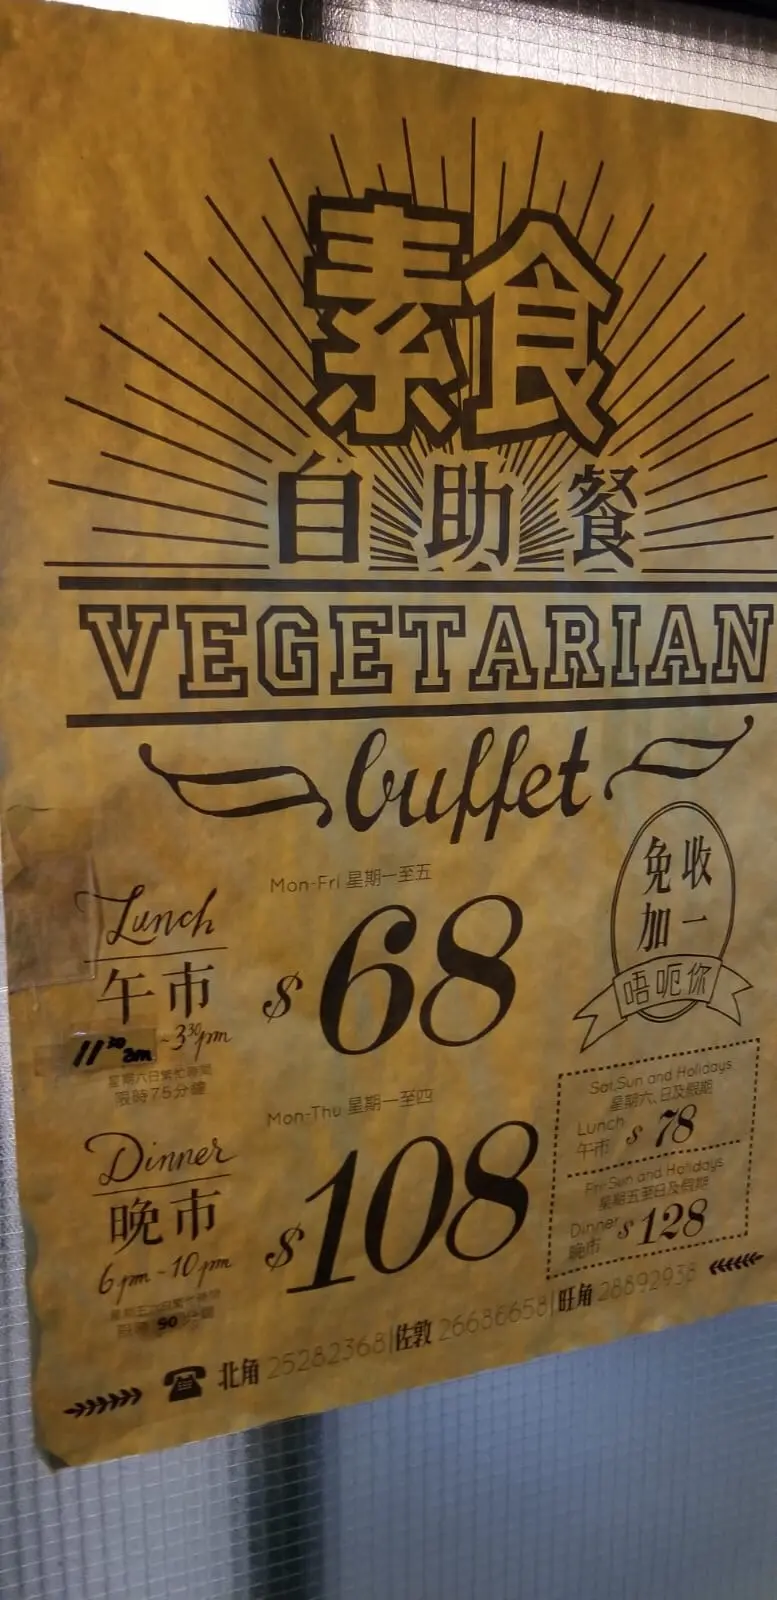 素食
自助餐
VEGETARIAN
buffet
Lunch
午市
11³⁰am ~3³⁰pm
星期六日繁忙時間
限時75分鐘
Mon-Fri 星期一至五
$68
免收
加一
唔呃你
Dinner
晚市
6pm-10pm
90
Mon-Thu 星期一至四
$108
Sat,Sun and Holidays
星期六、日及假期
Lunch
午市 $78
Fri-Sun and Holidays
星期五至日及假期
Dinner
晚市 $128
北角 25282368|佐敦 26686658|旺角 28892938